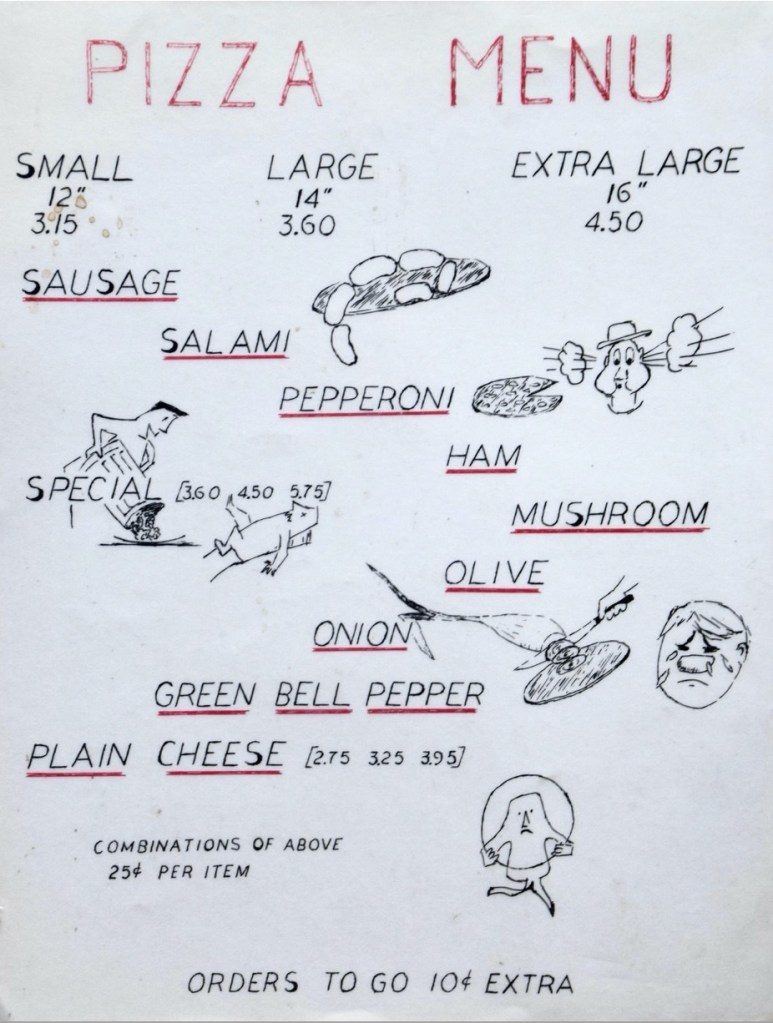 PIZZA MENU
SMALL LARGE EXTRA LARGE
12" 14" 16"
3.15 3.60 4.50
SAUSAGE
SALAMI
PEPPERONI
HAM
SPECIAL [3.60 4.50 5.75]
MUSHROOM
OLIVE
ONION
GREEN BELL PEPPER
PLAIN CHEESE [2.75 3.25 3.95]
COMBINATIONS OF ABOVE
25¢ PER ITEM
ORDERS TO GO 10¢ EXTRA